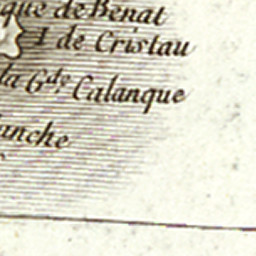 que de Benat
I de Cristau
la G.de Calanque
anche